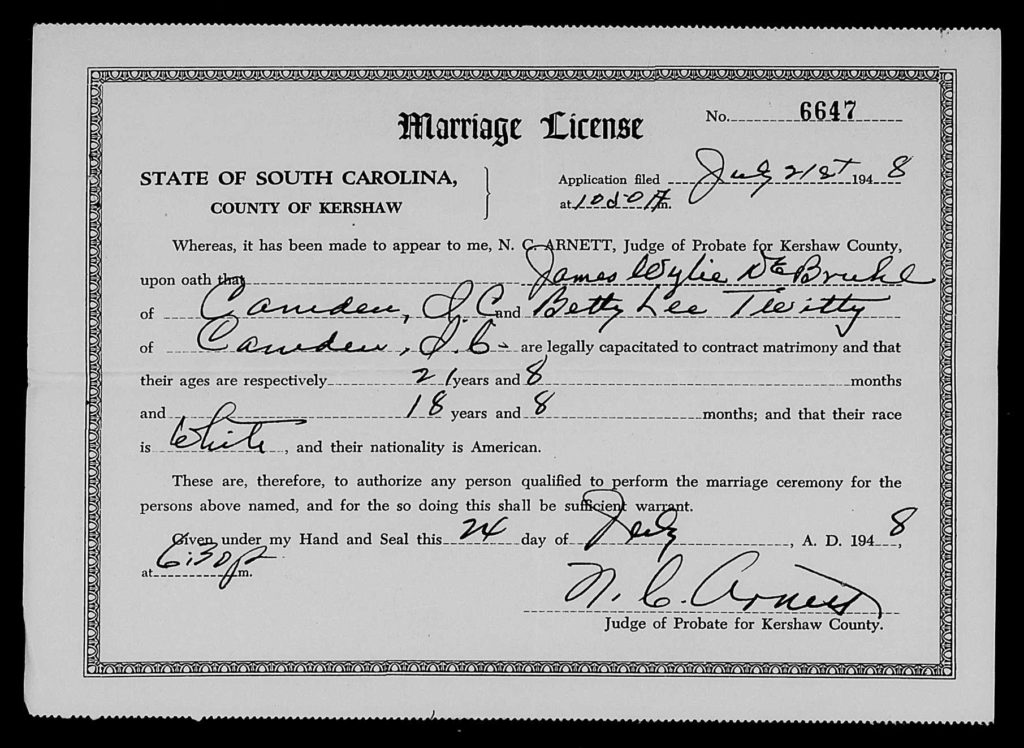 Marriage License
No. 6647
STATE OF SOUTH CAROLINA,
COUNTY OF KERSHAW
Application filed July 21st 1948
at 10 A.m.
Whereas, it has been made to appear to me, N. C. ARNETT, Judge of Probate for Kershaw County,
upon oath that James Wylie DeBruhl
of Camden, S.C and Betty Lee Twitty
of Camden, S.C- are legally capacitated to contract matrimony and that
their ages are respectively 21 years and 8 months
and 18 years and 8 months; and that their race
is White, and their nationality is American.
These are, therefore, to authorize any person qualified to perform the marriage ceremony for the
persons above named, and for the so doing this shall be sufficient warrant.
Given under my Hand and Seal this 24 day of July, A. D. 1948,
at 6:30 p m.
N. C. Arnett
Judge of Probate for Kershaw County.